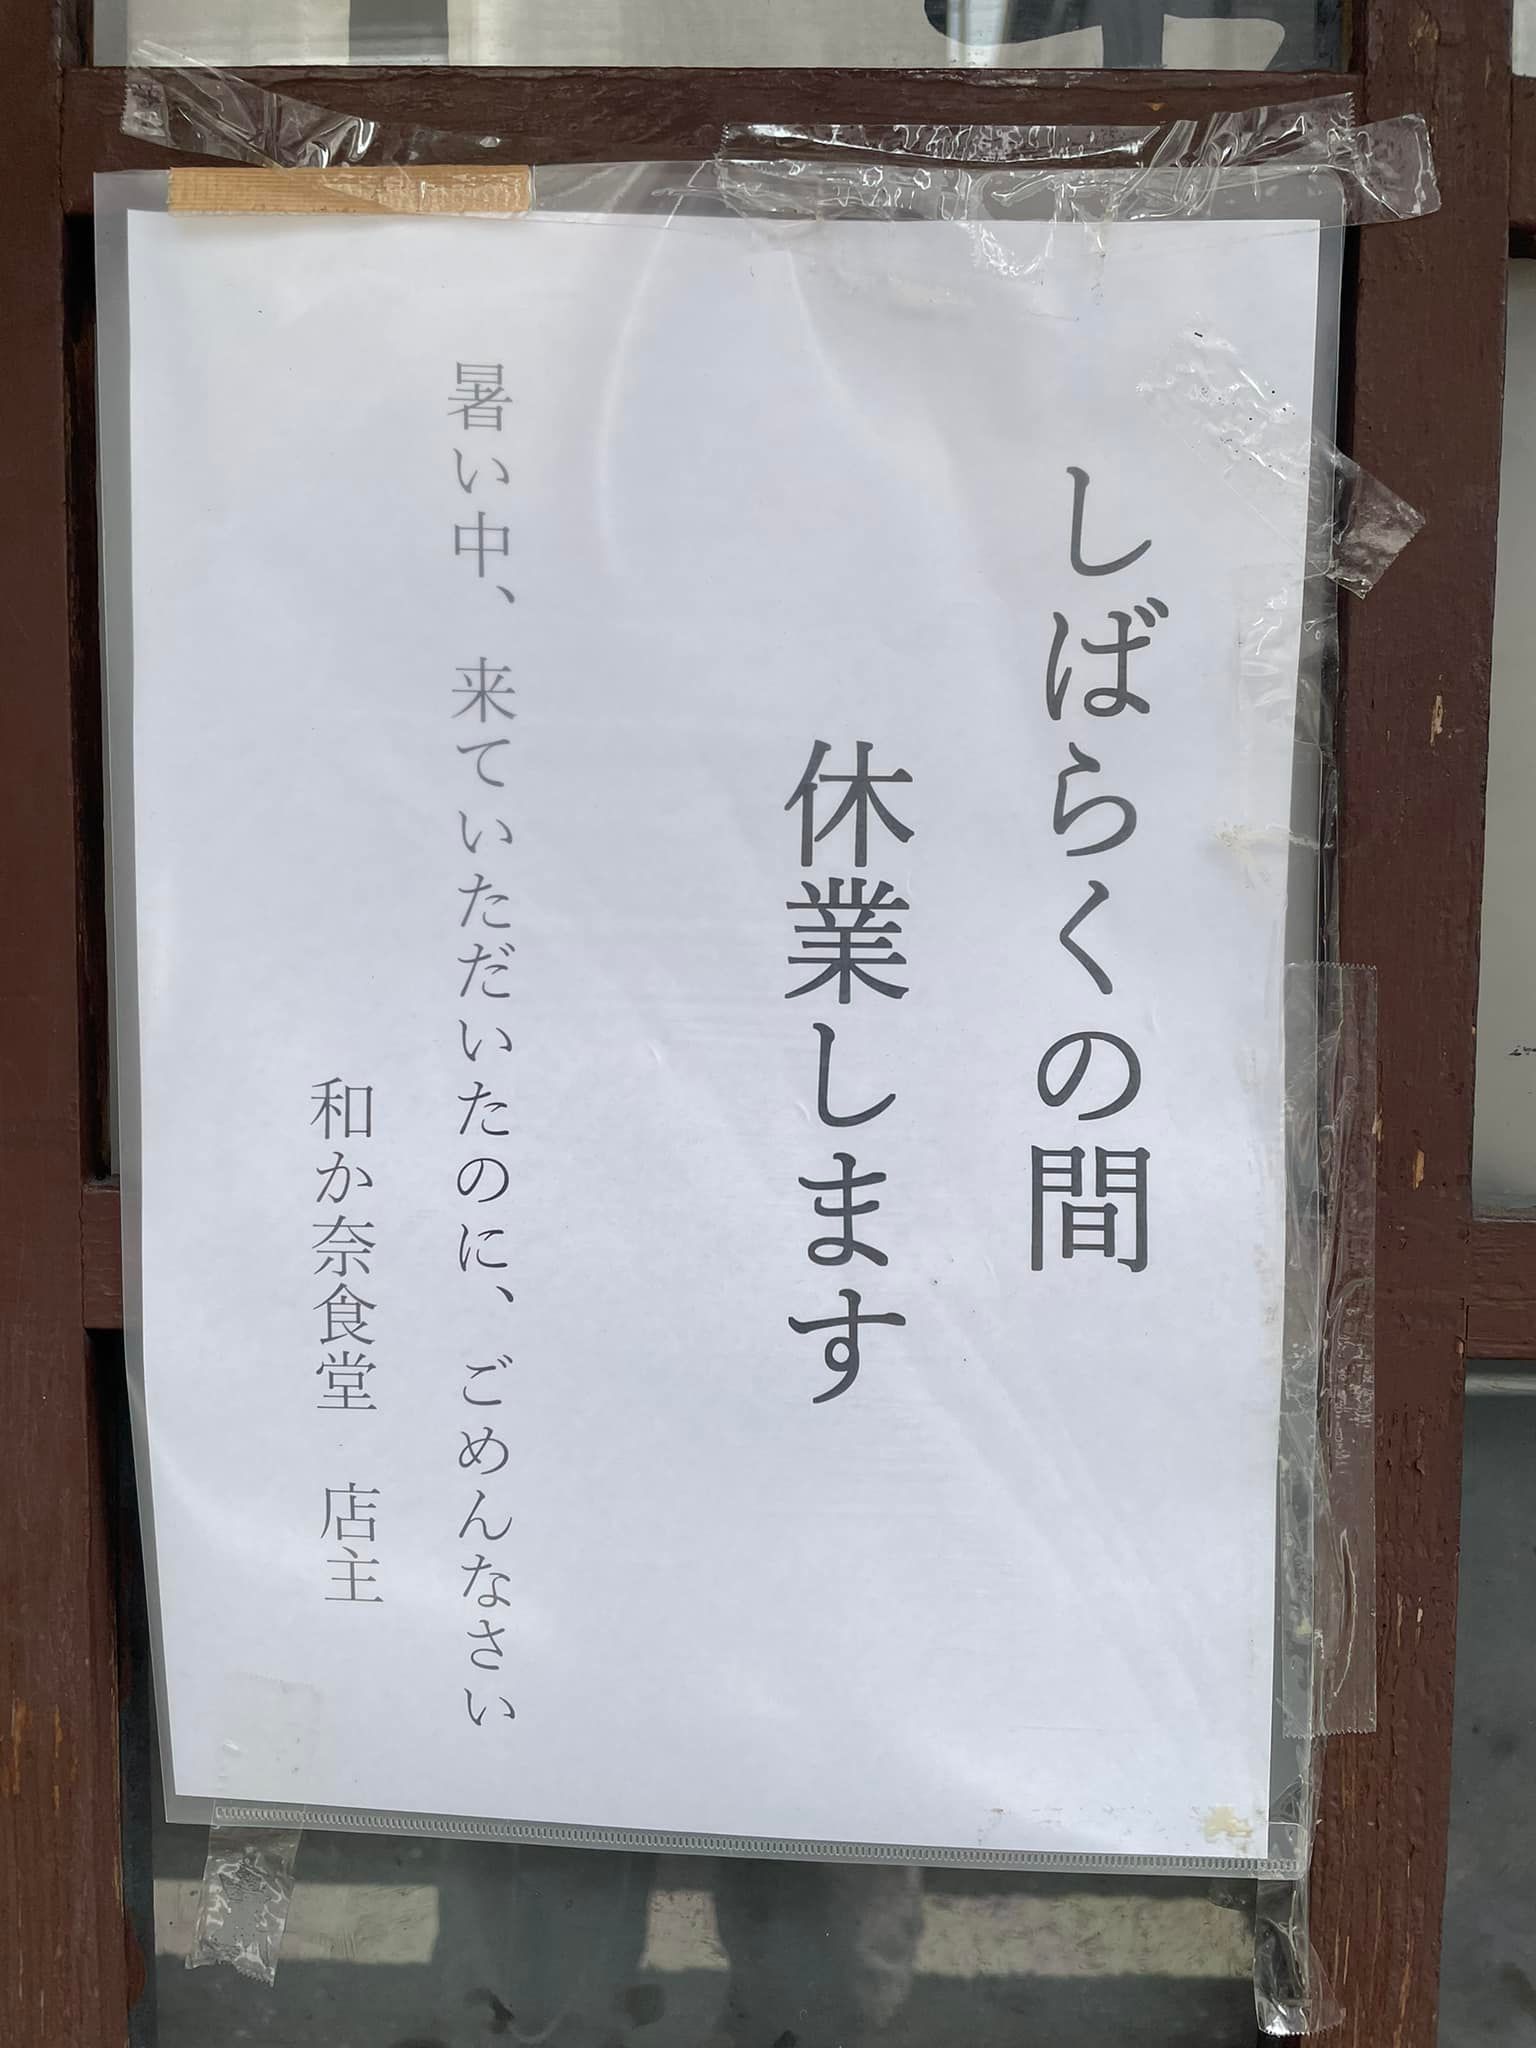 しばらくの間
休業します
暑い中、来ていただいたのに、ごめんなさい
和か奈食堂　店主